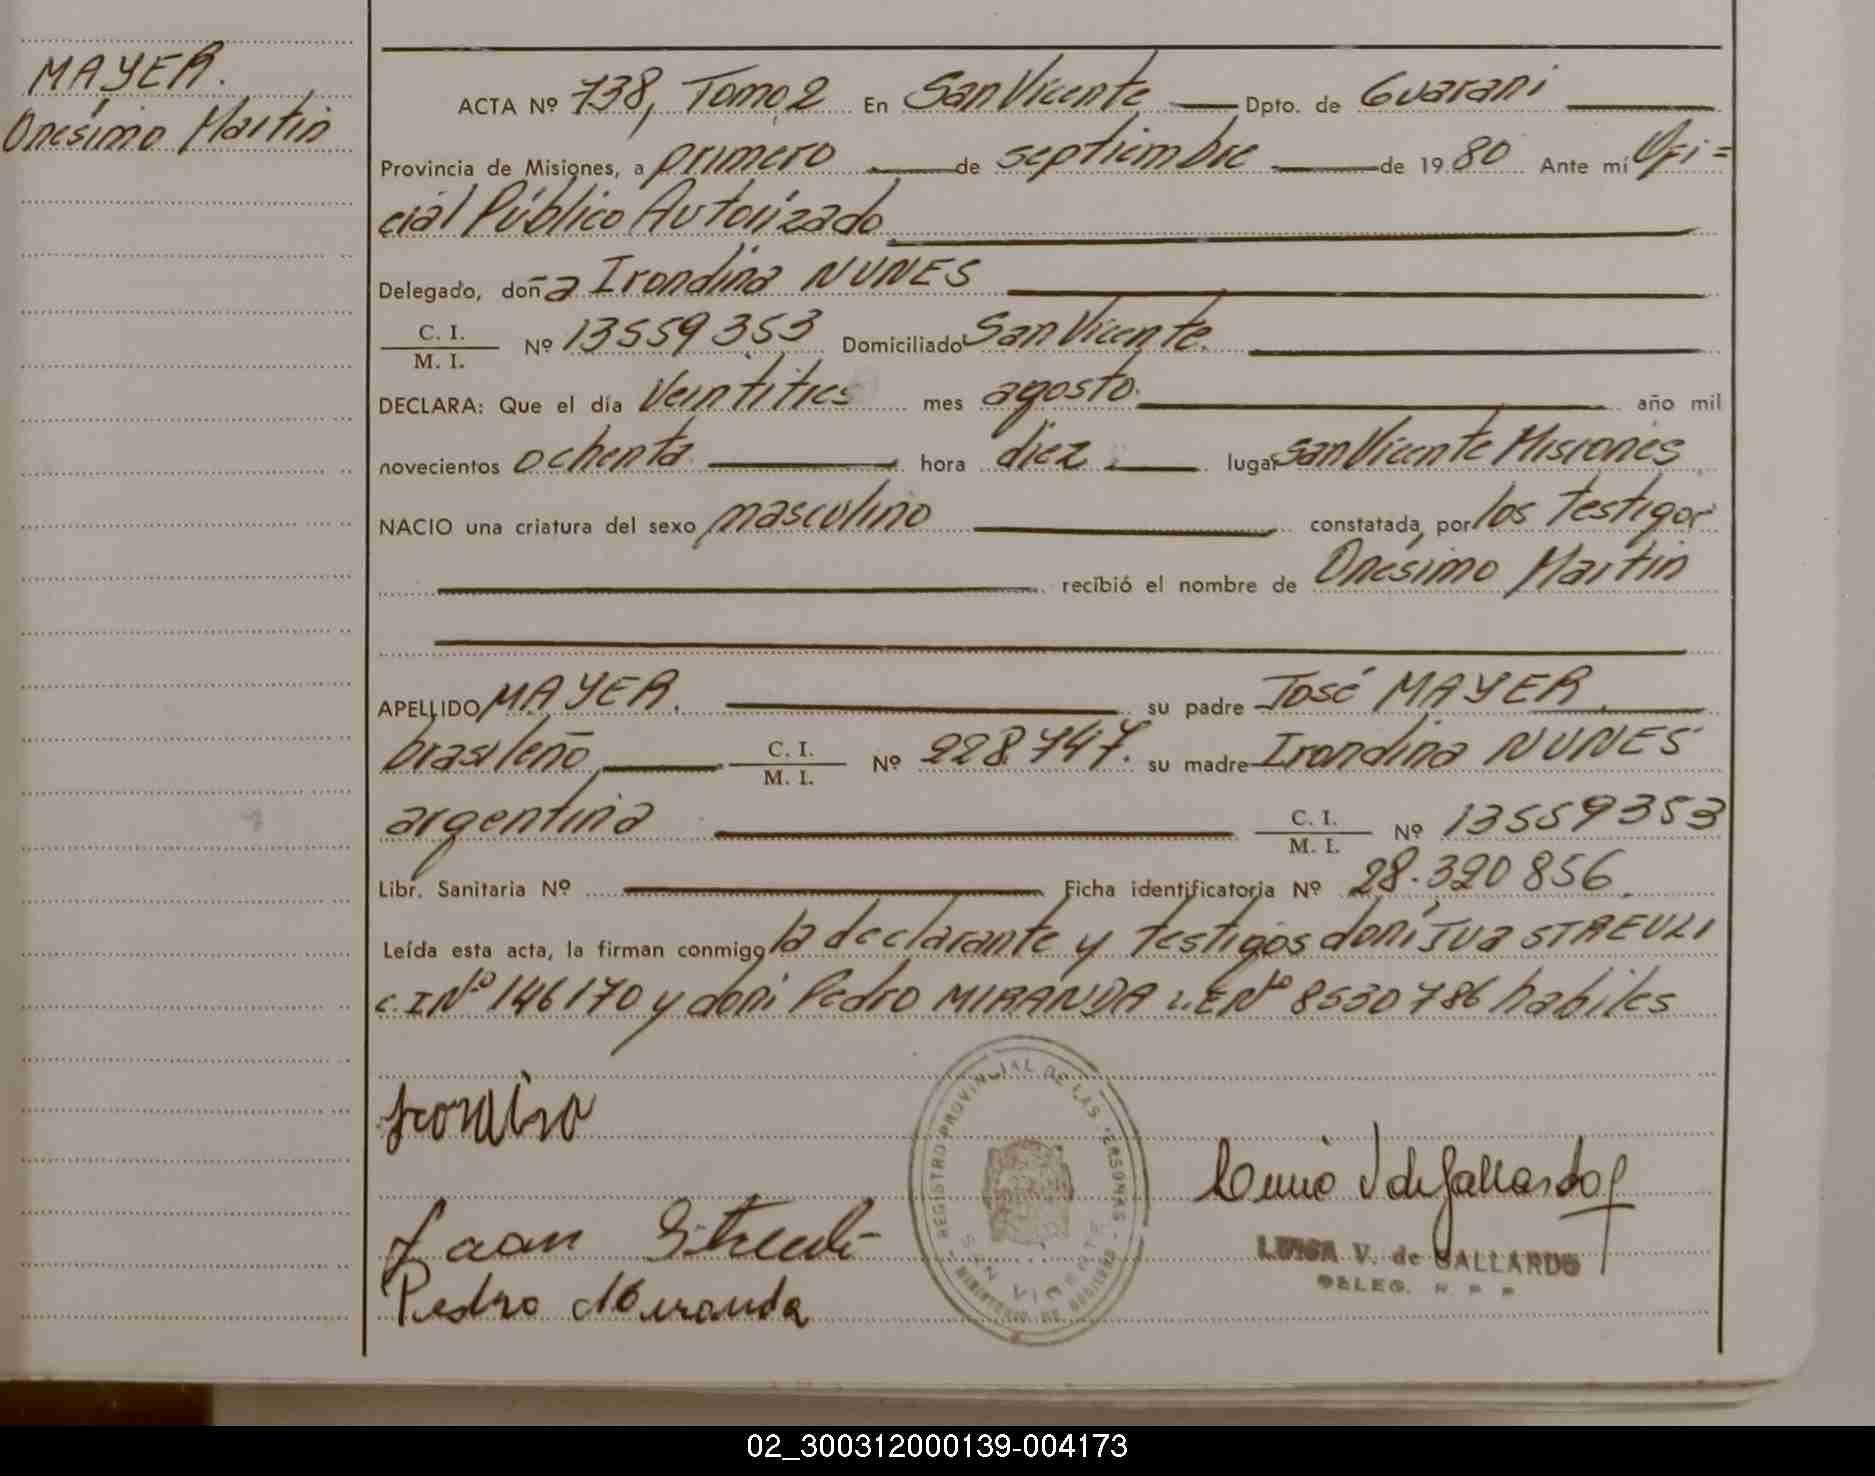 MAYER.
Onésimo Martin
ACTA Nº 738, Tomo 2 En San Vicente Dpto. de Guarani
Provincia de Misiones, a primero de septiembre de 1980 Ante mí Ofi=
cial Público Autorizado
Delegado, doña Irondina NUNES
C. I.
M. I. Nº 13559353 Domiciliado San Vicente.
DECLARA: Que el día Veintitres mes agosto. año mil
novecientos ochenta hora diez lugar San Vicente Misiones
NACIO una criatura del sexo masculino constatada por los testigos
recibió el nombre de Onésimo Martin
APELLIDO MAYER. su padre José MAYER.
brasileño C. I.
M. I. Nº 228.747. su madre Irondina NUNES
argentina C. I.
M. I. Nº 13559353
Libr. Sanitaria Nº Ficha identificatoria Nº 28.320856.
Leída esta acta, la firman conmigo la declarante y testigos don: STREULI
C.I Nº 146170 y don: Pedro MIRANDA L.E Nº 8530786 habiles
Juan Streuli
Pedro Miranda
REGISTRO PROVINCIAL DE LAS PERSONAS
SAN VICENTE
MINISTERIO DE GOBIERNO
LUISA V. de GALLARDO
DELEG. R. P. P.
02_300312000139-004173